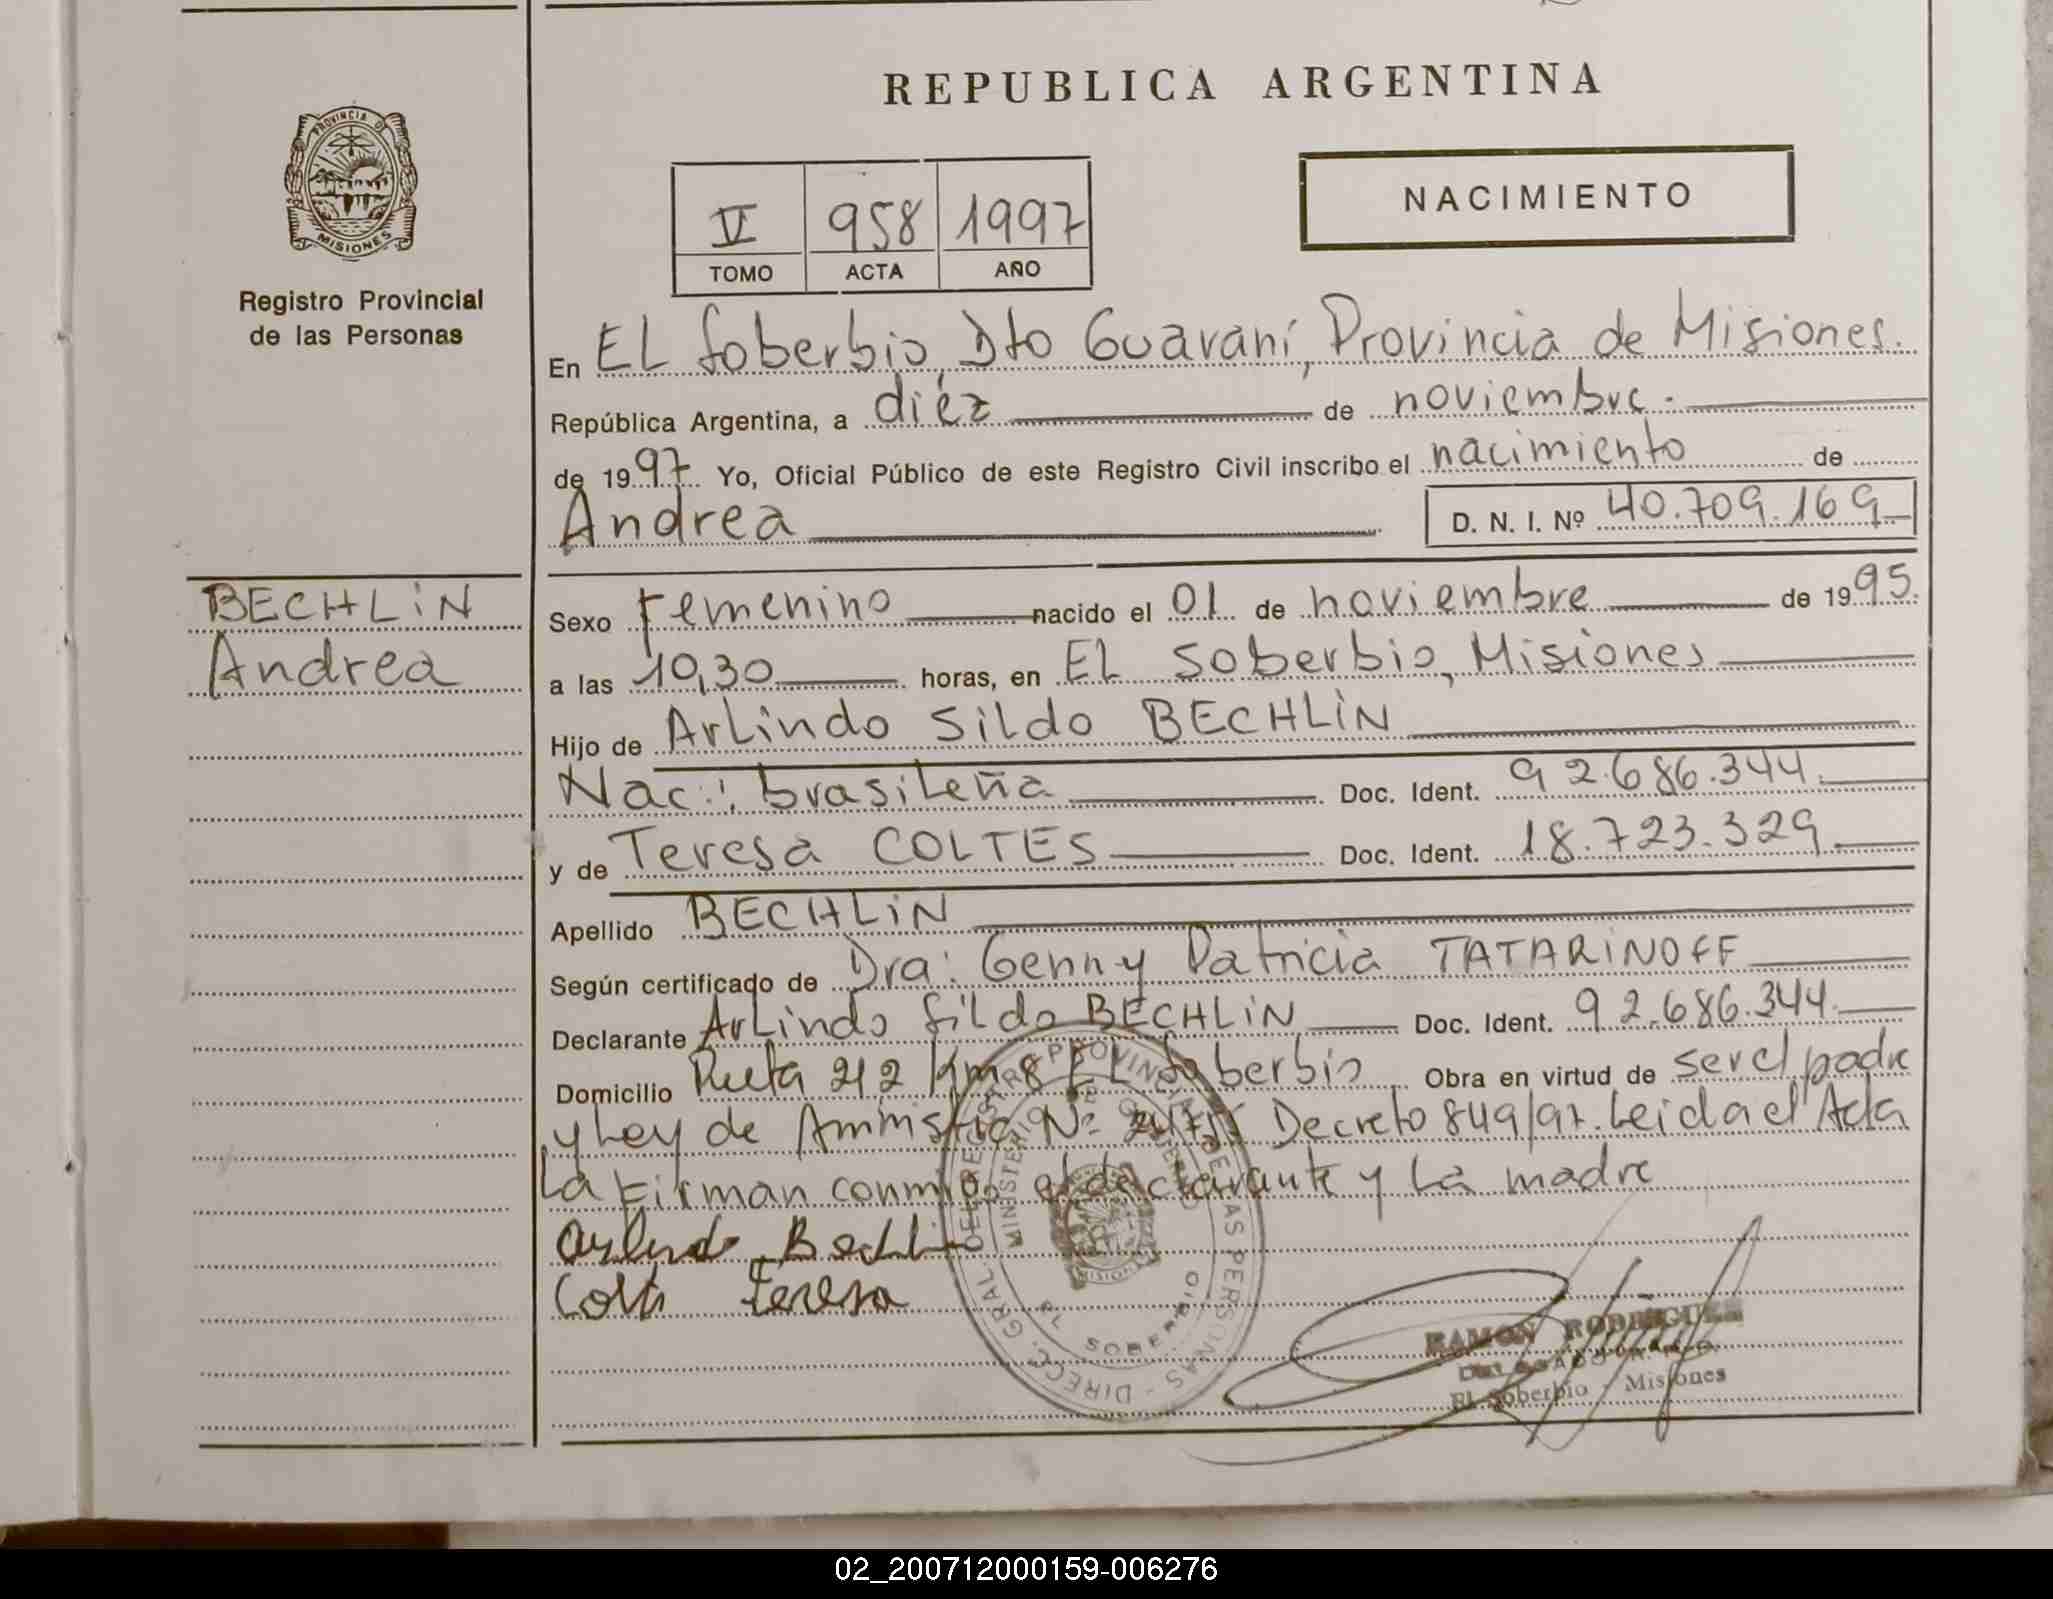 REPUBLICA ARGENTINA
PROVINCIA DE
MISIONES
Registro Provincial
de las Personas
NACIMIENTO
958 1997
TOMO ACTA AÑO
En EL Soberbio, Dto Guaraní, Provincia de Misiones.
República Argentina, a diéz de noviembre.
de 1997 Yo, Oficial Público de este Registro Civil inscribo el nacimiento de
Andrea D. N. I. Nº 40.709.169
BECHLiN
Andrea
Sexo Femenino nacido el 01 de noviembre de 1995.
a las 10,30 horas, en EL Soberbio, Misiones
Hijo de ArLindo Sildo BECHLiN
Nac.: brasiLeña Doc. Ident. 92.686.344.
y de Teresa COLTES Doc. Ident. 18.723.329
Apellido BECHLiN
Según certificado de Dra: Genny Patricia TATARiNOFF
Declarante ArLindo SiLdo BECHLiN Doc. Ident. 92.686.344.
Domicilio Ruta 212 Km 8 EL Soberbio Obra en virtud de ser el padre
y Ley de Amnistia Nº Decreto 849/97. Leida el Acta
La Firman conmigo el declarante y La madre
Arlindo Bechlin
Teresa
DIRECC. GRAL. DEL REGISTRO PROVINCIAL DE LAS PERSONAS
MINISTERIO DE GOBIERNO
MISIONES
EL SOBERBIO
RAMON RODRIGUEZ
DELEGADO
El Soberbio - Misiones
02_200712000159-006276